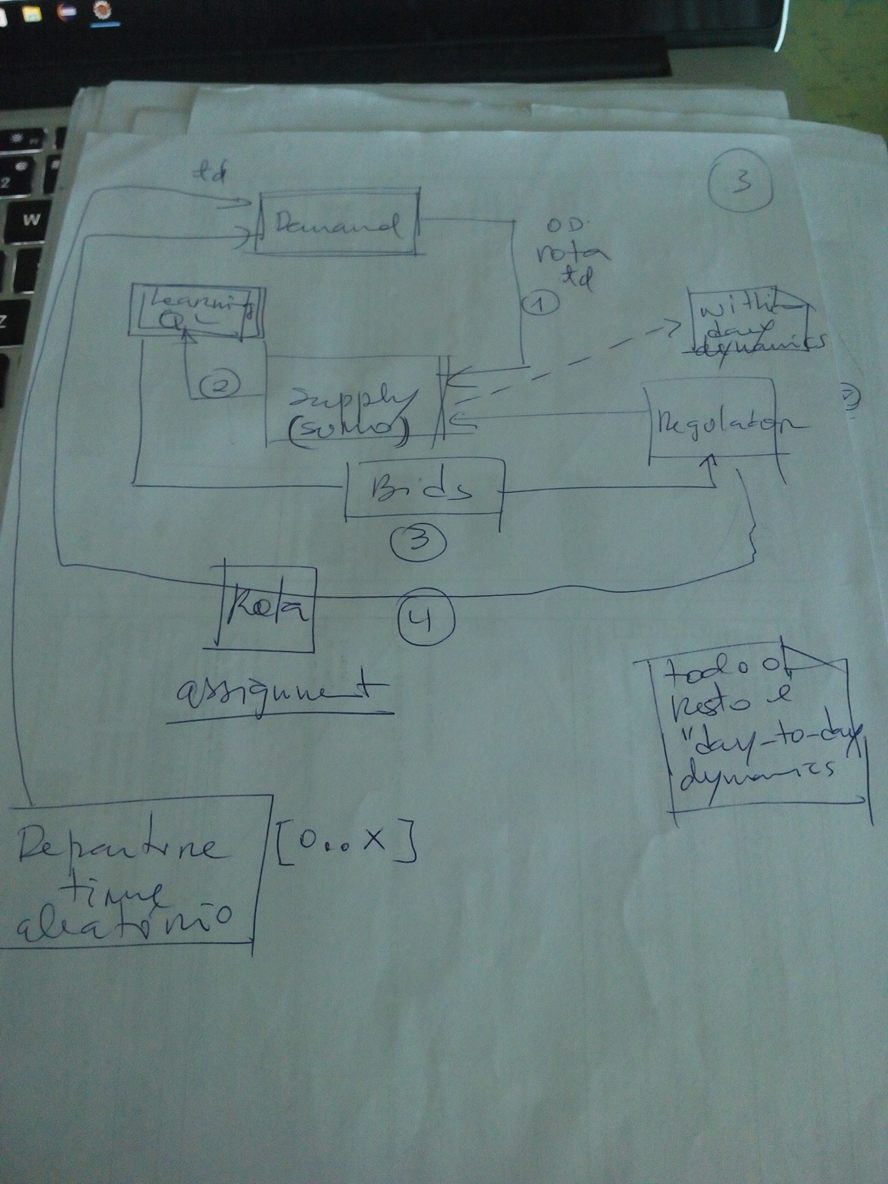 td
3
Demand
OD
rota
td
1
Learning
QL
within
day
dynamics
2
Supply
(SUMO)
Regulator
Bids
3
Rota
4
assignment
todo o
resto é
"day-to-day
dynamics
Departure
time
aleatório
[0..x]